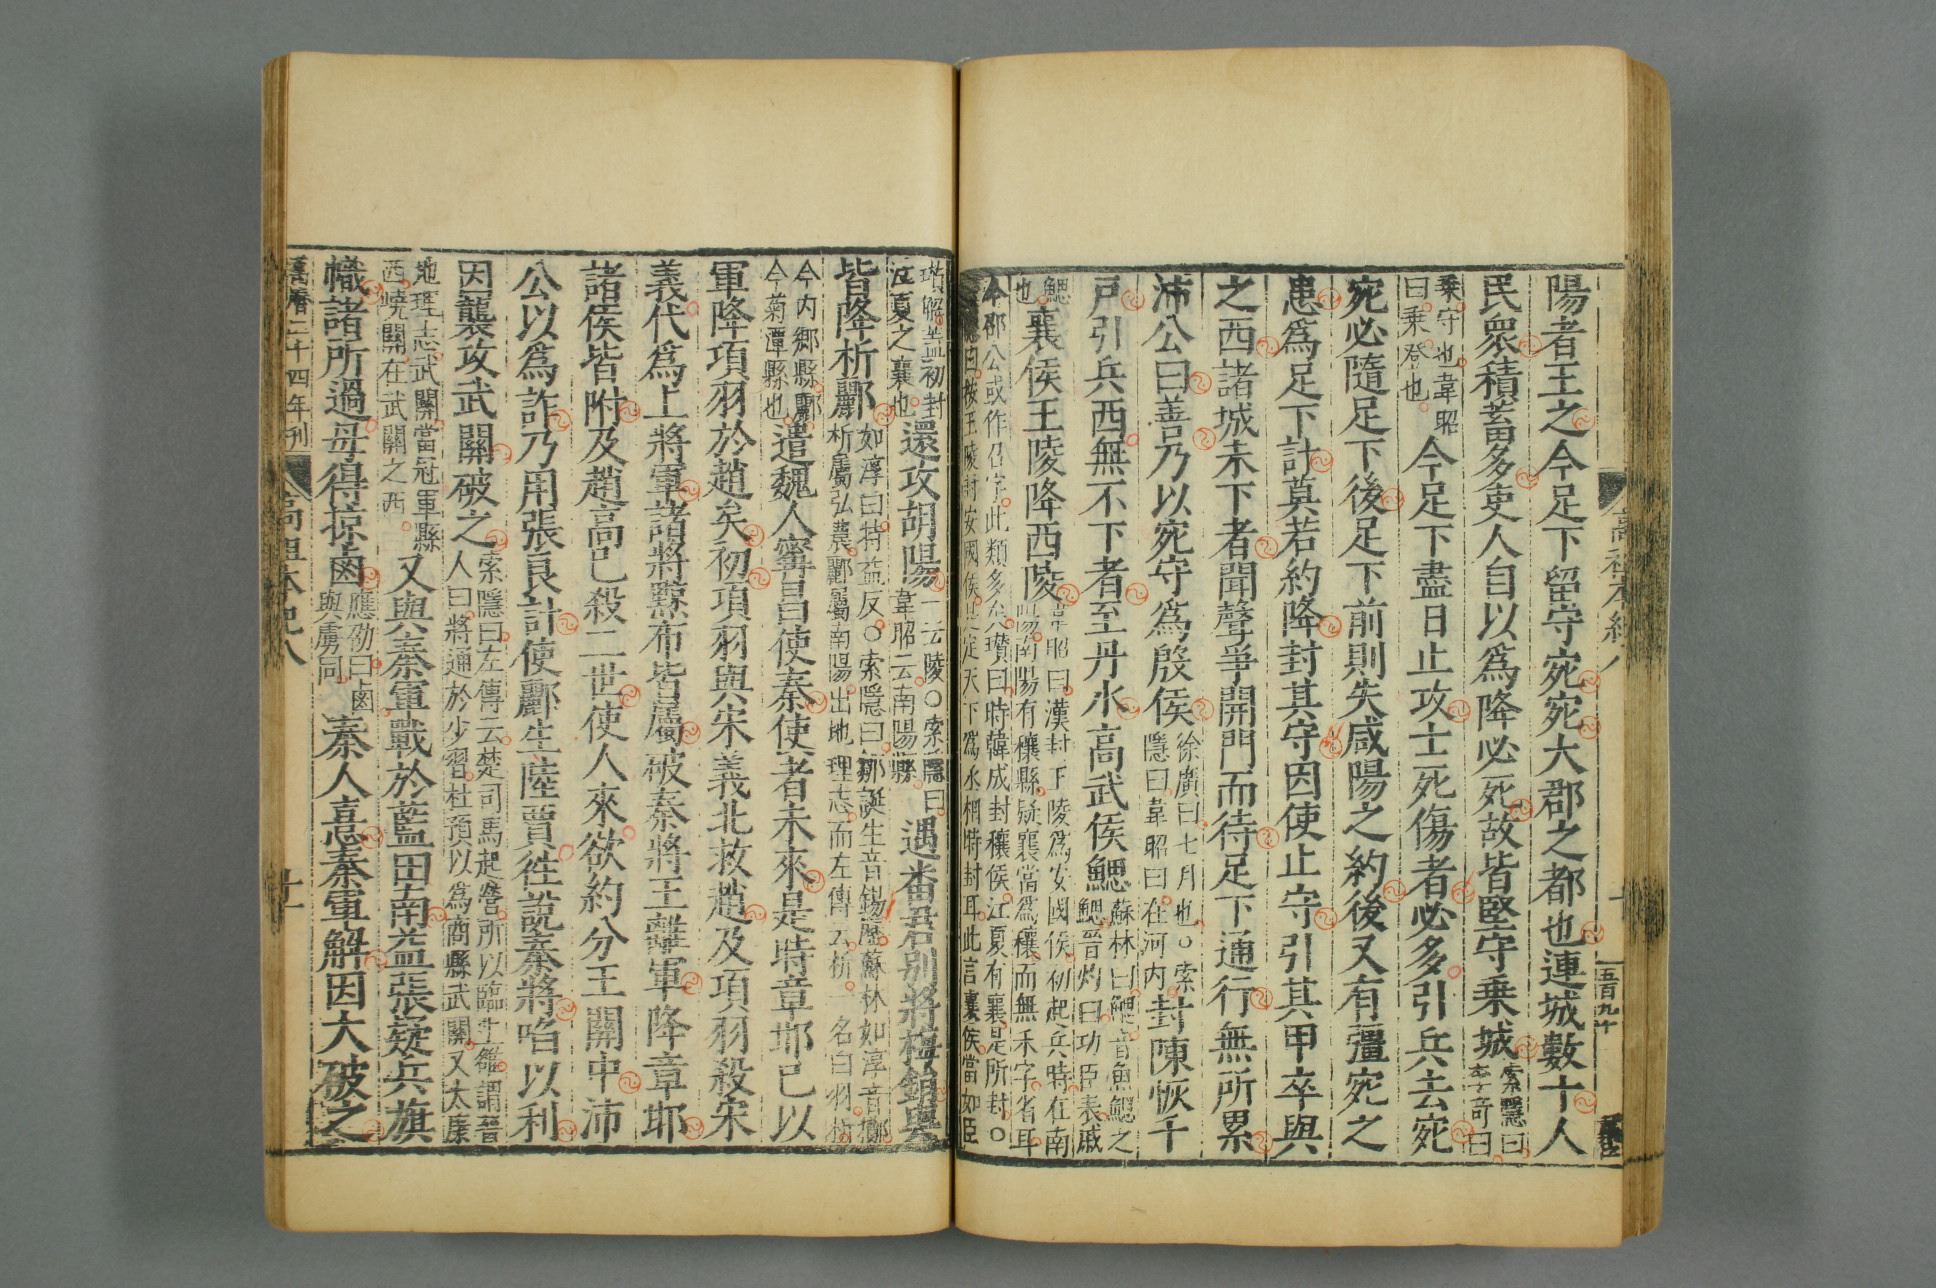 高祖本紀八
五百九十
陽者王之今足下留守宛宛大郡之都也連城數十人
民衆積蓄多吏人自以爲降必死故皆堅守乗城索隱曰李奇曰
乗守也韋昭曰乗登也今足下盡日止攻士死傷者必多引兵去宛
宛必隨足下後足下前則失咸陽之約後又有彊宛之
患爲足下計莫若約降封其守因使止守引其甲卒與
之西諸城未下者聞聲爭開門而待足下通行無所累
沛公曰善乃以宛守爲殷侯徐廣曰七月也○索隱曰韋昭曰在河内封陳恢千
戸引兵西無不下者至丹水高武侯鰓蘇林曰鰓音魚鰓之鰓晉灼曰功臣表戚
鰓也襄侯王陵降西陵韋昭曰漢封王陵爲安國侯初起兵時在南陽南陽有穰縣疑襄當爲穰而無禾字省耳
今邵公或作召字此類多矣瓚曰時韓成封穰侯江夏有襄是所封○索隱曰按王陵封安國侯是定天下爲丞相時封耳此言襄侯當如臣
瓚解蓋初封江夏之襄也還攻胡陽一云陵○索隱曰韋昭云南陽縣遇番君別將梅鋗與
皆降析酈如淳曰持益反○索隱曰鄒誕生音錫歷蘇林如淳音擲析屬弘農酈屬南陽出地理志而左傳云析一名白羽析
今内鄉縣酈今菊潭縣也遣魏人甯昌使秦使者未來是時章邯已以
軍降項羽於趙矣初項羽與宋義北救趙及項羽殺宋
義代爲上將軍諸將黥布皆屬破秦將王離軍降章邯
諸侯皆附及趙高已殺二世使人來欲約分王關中沛
公以爲詐乃用張良計使酈生陸賈往說秦將啗以利
因襲攻武關破之索隱曰左傳云楚司馬起豐所以臨上雒謂晉人曰將通於少習杜預以爲商縣武關又太康
地理志武關當冠軍縣西嶢關在武關之西又與秦軍戰於藍田南益張疑兵旗
幟諸所過毋得掠鹵應劭曰鹵與虜同秦人憙秦軍解因大破之
萬曆二十四年刊
高祖本紀八
廿一